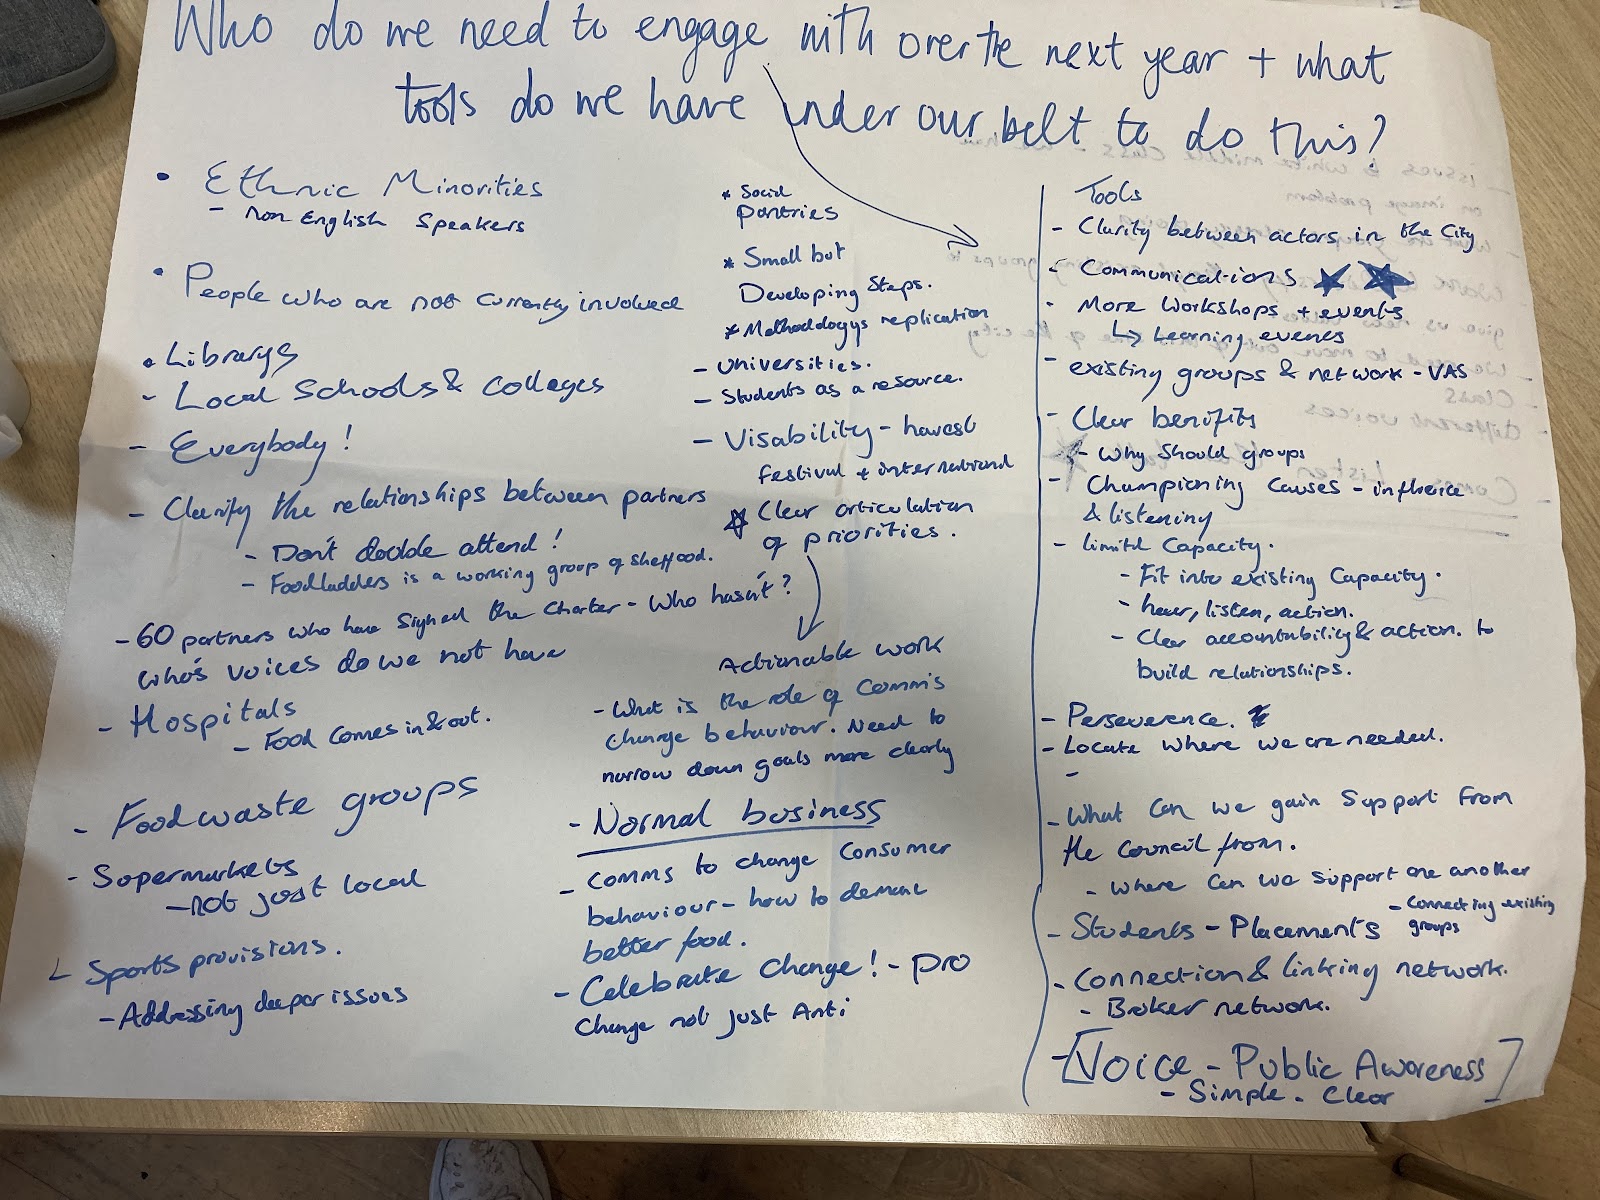 Who do we need to engage with over the next year + what
tools do we have under our belt to do this?
• Ethnic Minorities
- Non English Speakers
• People who are not currently involved
• Librarys
- Local Schools & colleges
- Everybody!
- Clarify the relationships between partners
- Don't double attend!
- Foodladders is a working group of sheffood.
- 60 partners who have signed the charter - who hasn't?
who's voices do we not have
- Hospitals
- Food comes in & out.
- Food waste groups
- Supermarkets
- not just local
- Sports provisions.
- Addressing deeper issues
* Social
pantries
* Small but
Developing Steps.
* Methodologys replication
- Universities.
- Students as a resource.
- Visability - havest
festival + international
☆ Clear articulation
of priorities.
Actionable work
- What is the role of Comms
change behaviour. Need to
narrow down goals more clearly
- Normal business
- Comms to change Consumer
behaviour - how to demand
better food.
- Celebrate Change! - pro
Change not just Anti
Tools
- Clarity between actors in the City
- Communications ★ ★
- More Workshops + events
↳ Learning events
- existing groups & network - VAS
- Clear benifits
- Why Should groups
- Championing Causes - influence
& listening
- limitd Capacity.
- Fit into existing Capacity.
- hear, listen, action.
- Clear accountability & action. to
build relationships.
- Perseverence.
- Locate where we are needed.
-
- What Can we gain Support From
the Council from.
- Where Can we Support one another
- Connecting existing
groups
- Students - Placements
- Connection & linking network.
- Broker network.
- [Voice - Public Awareness]
- Simple. Clear